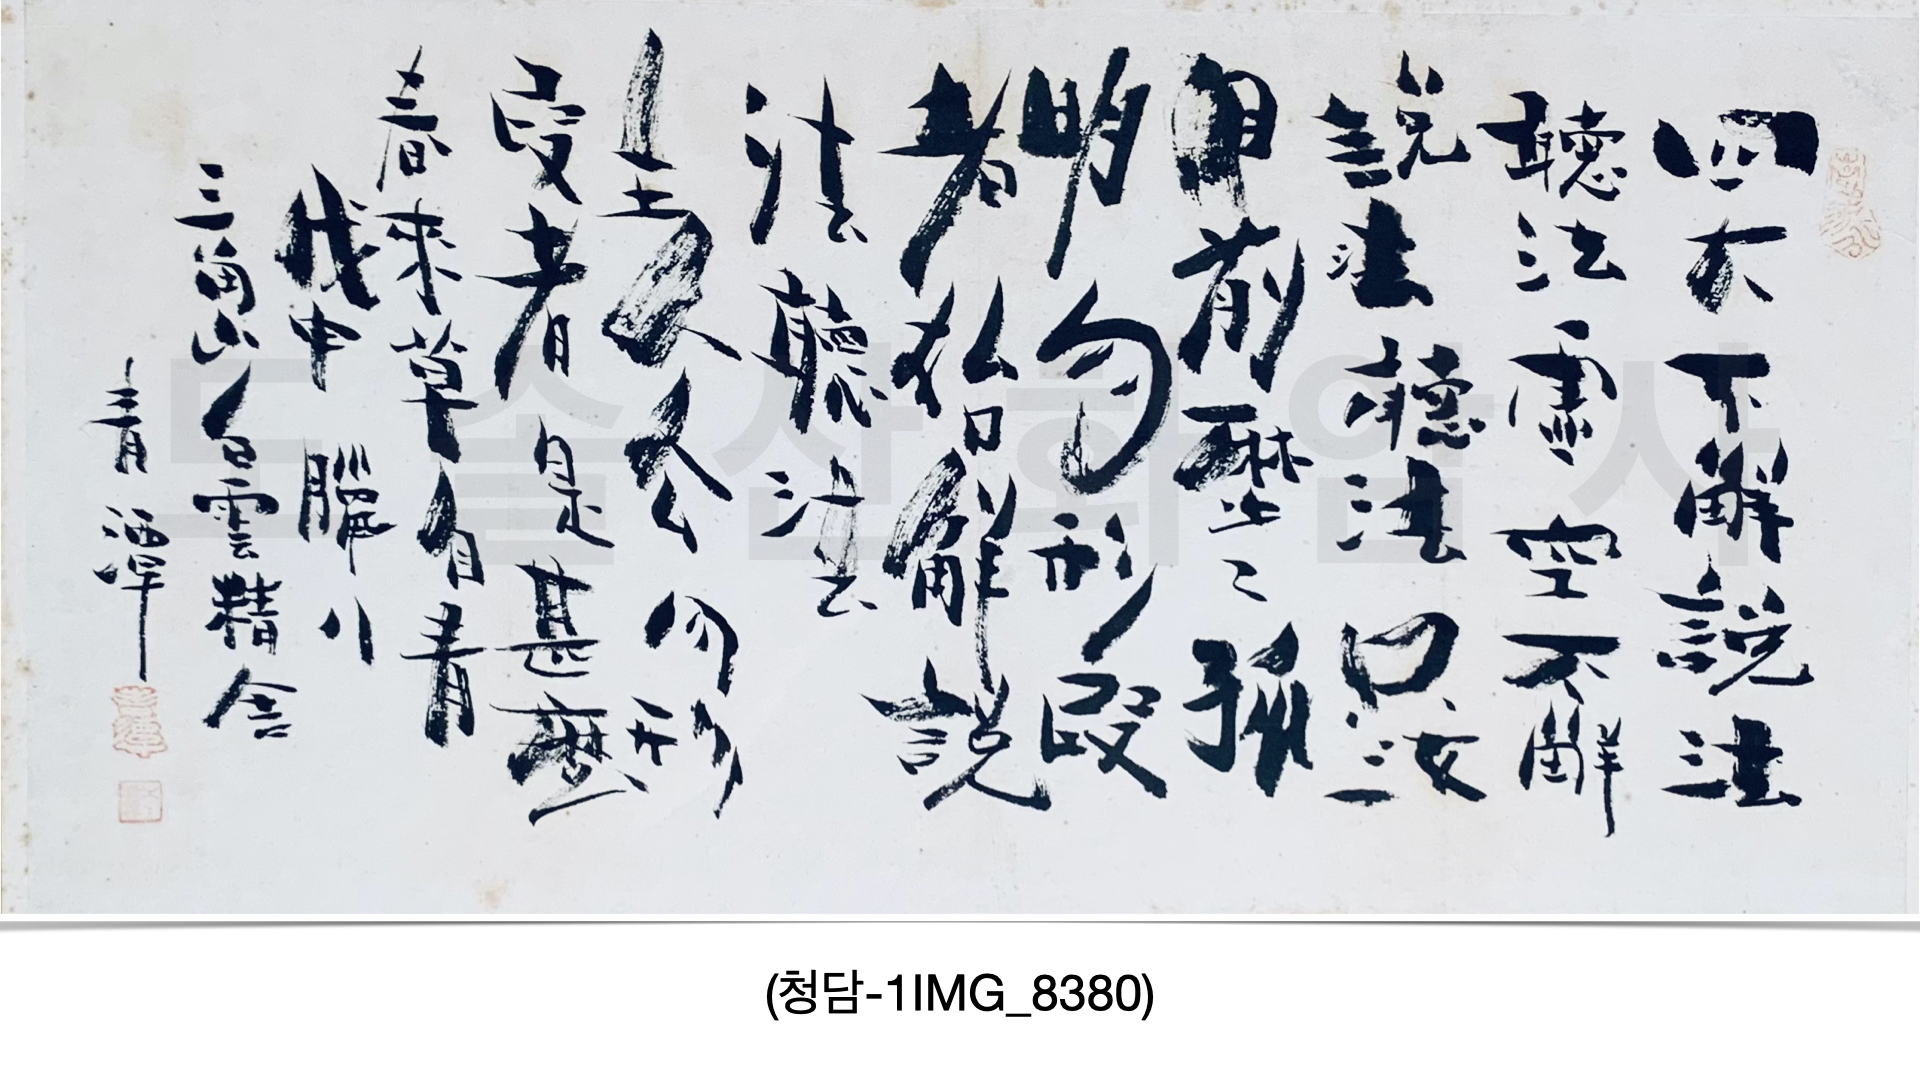 四大不解說法
聽法虛空不解
說法聽法只汝
目前歷々孤
明勿形段
者始解說
法聽法
主人公勿形
段者是甚麼
春來草自青
戊申 臘八
三角山白雲精舍
青潭
도솔산화암사
(청담-1IMG_8380)